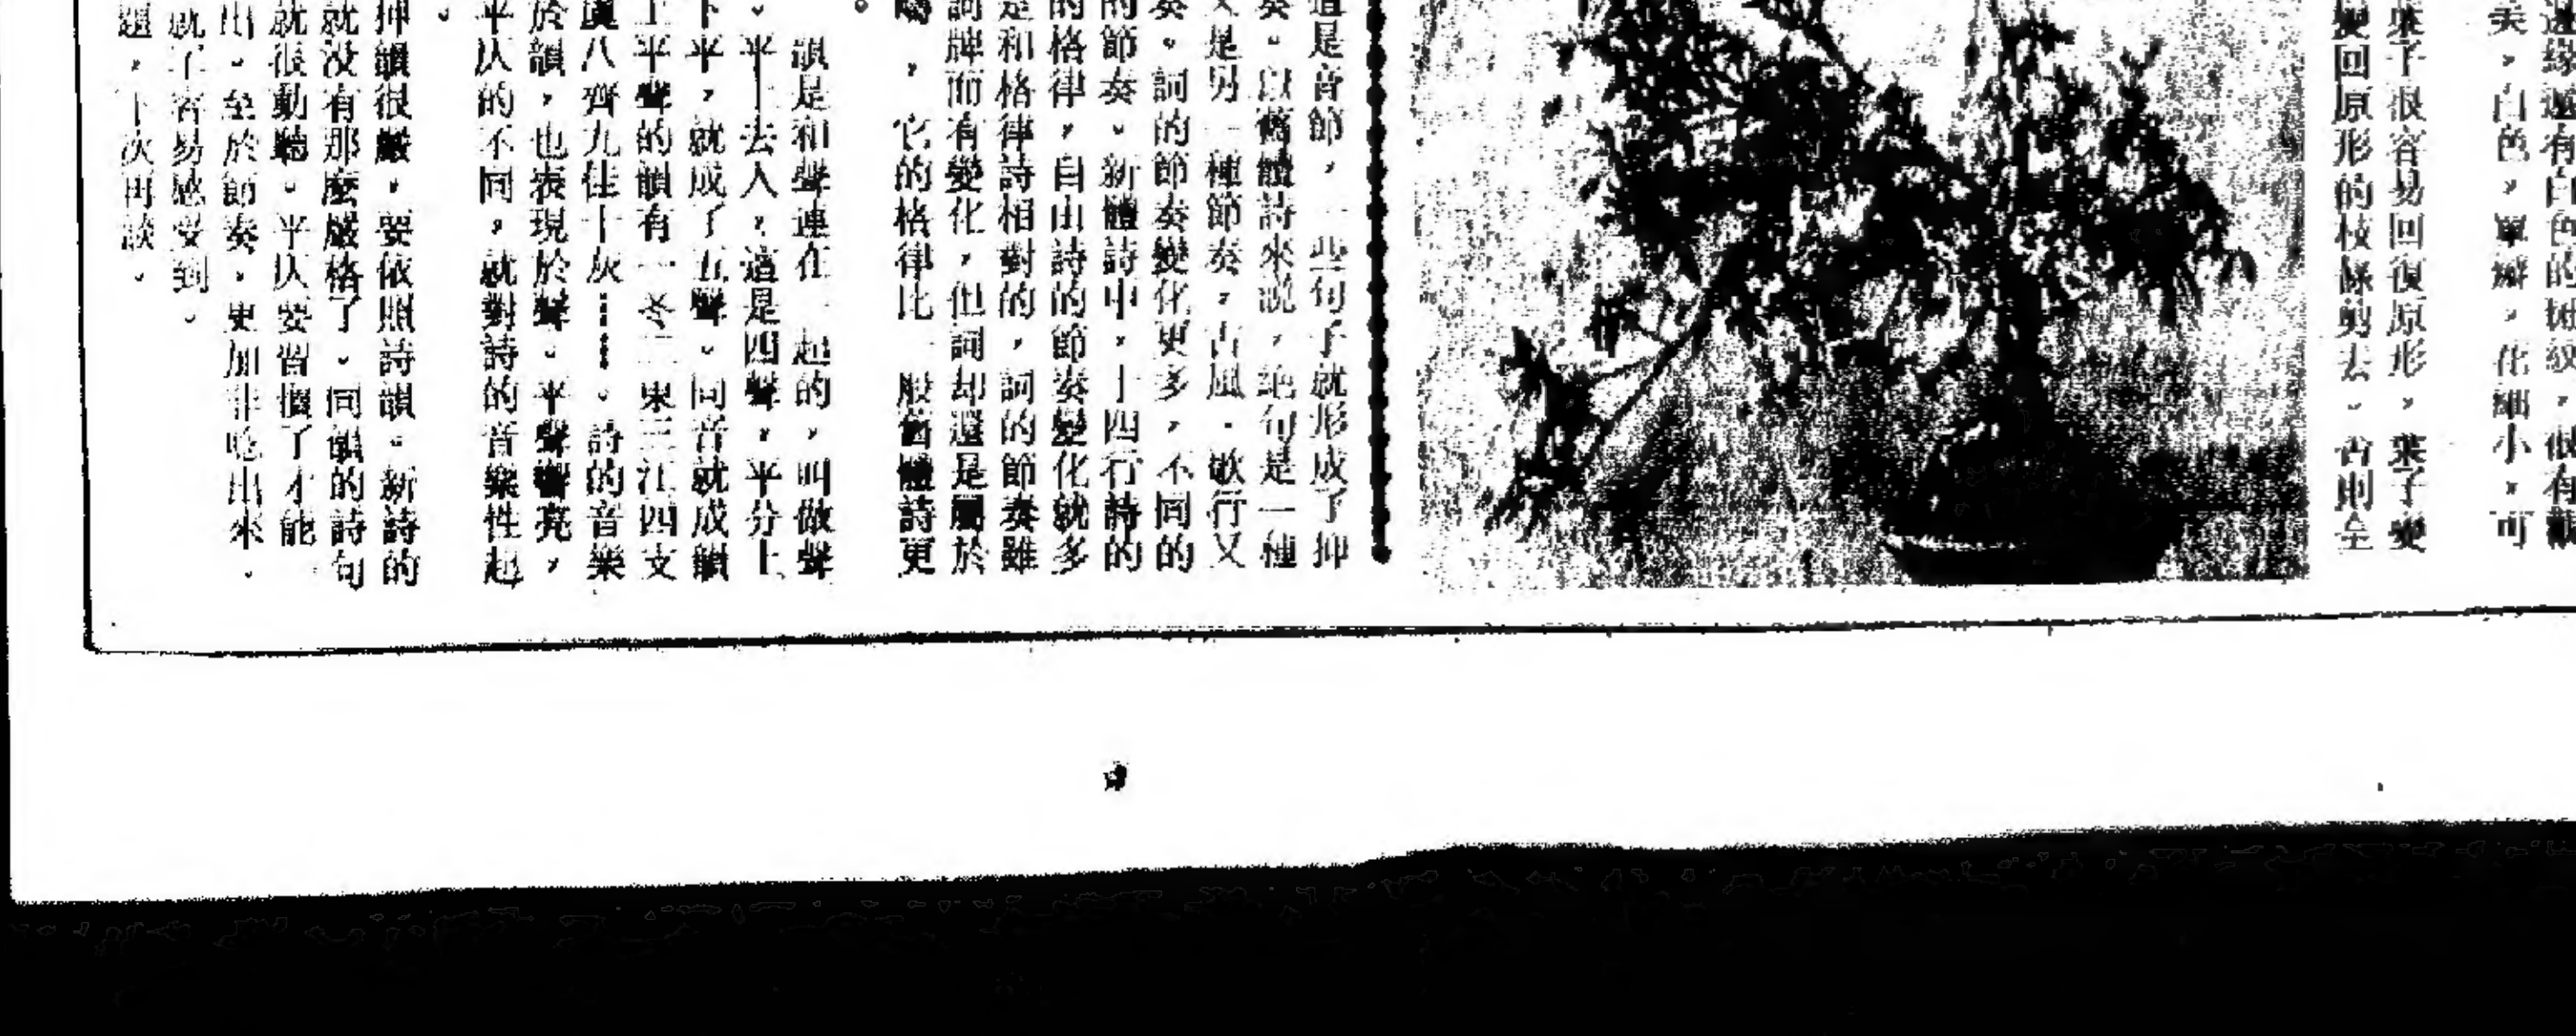 邊緣還有白色的斑紋，很有觀
美，白色，單瓣，花細小，可
葉子很容易回復原形，葉子變
變回原形的枝條剪去。否則全
這是音節，一些句子就形成了抑
奏。以舊體詩來說，絕句是一種
又是另一種節奏，古風．歌行又
奏。詞的節奏變化更多，不同的
的節奏。新體詩中，十四行詩的
的格律，自由詩的節奏變化就多
是和格律詩相對的，詞的節奏雖
詞牌而有變化，但詞却還是屬於
，它的格律比一般舊體詩更
。
韻是和聲連在一起的，叫做聲
。平上去入，這是四聲，平分上
下平，就成了五聲。同音就成韻
上平聲的韻有一冬二東三江四支
真八齊九佳十灰……。詩的音樂
於韻，也表現於聲。平聲響亮，
平仄的不同，就對詩的音樂性起
。
押韻很嚴，要依照詩韻。新詩的
就没有那麼嚴格了。同韻的詩句
就很動聽。平仄要習慣了才能
出。至於節奏，更加非唸出來，
就不容易感受到。
題，下次再談。